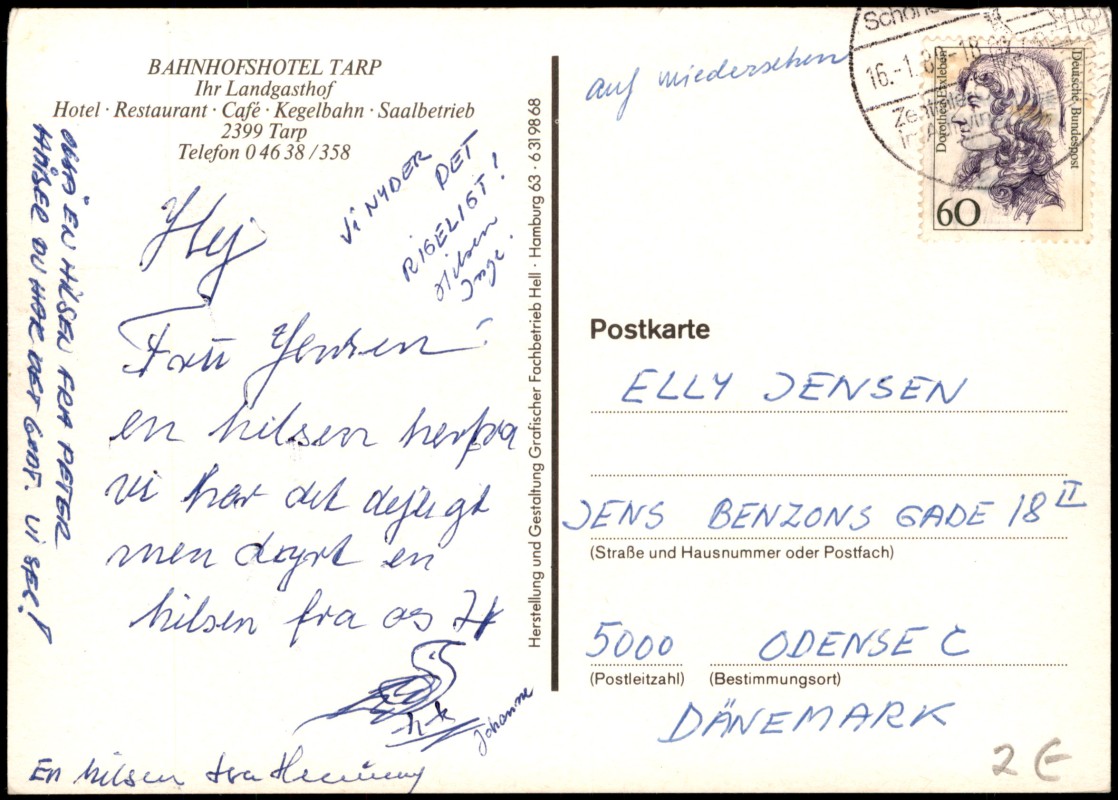 BAHNHOFSHOTEL TARP
Ihr Landgasthof
Hotel · Restaurant · Café · Kegelbahn · Saalbetrieb
2399 Tarp
Telefon 0 46 38 / 358
Hej
Frau Jensen!
en hilsen herfra
vi har det dejligt
men dayrt en
hilsen fra os 7
Vi NYDER
DET
RIGELIGT!
Hilsen
Inge.
OGSÅ EN HILSEN FRA PETER
HÅBER DU HAR DET GODT. VI SES!
h-k
Johanne
En hilsen fra Henning
Herstellung und Gestaltung Grafischer Fachbetrieb Hell · Hamburg 63 · 6 31 98 68
auf wiedersehen
16.-1.8
-18
Zentrale
Dorothea Erxleben
Deutsche Bundespost
60
Postkarte
ELLY JENSEN
JENS BENZONS GADE 18 II
(Straße und Hausnummer oder Postfach)
5000 ODENSE C
(Postleitzahl) (Bestimmungsort)
DÄNEMARK
2 €